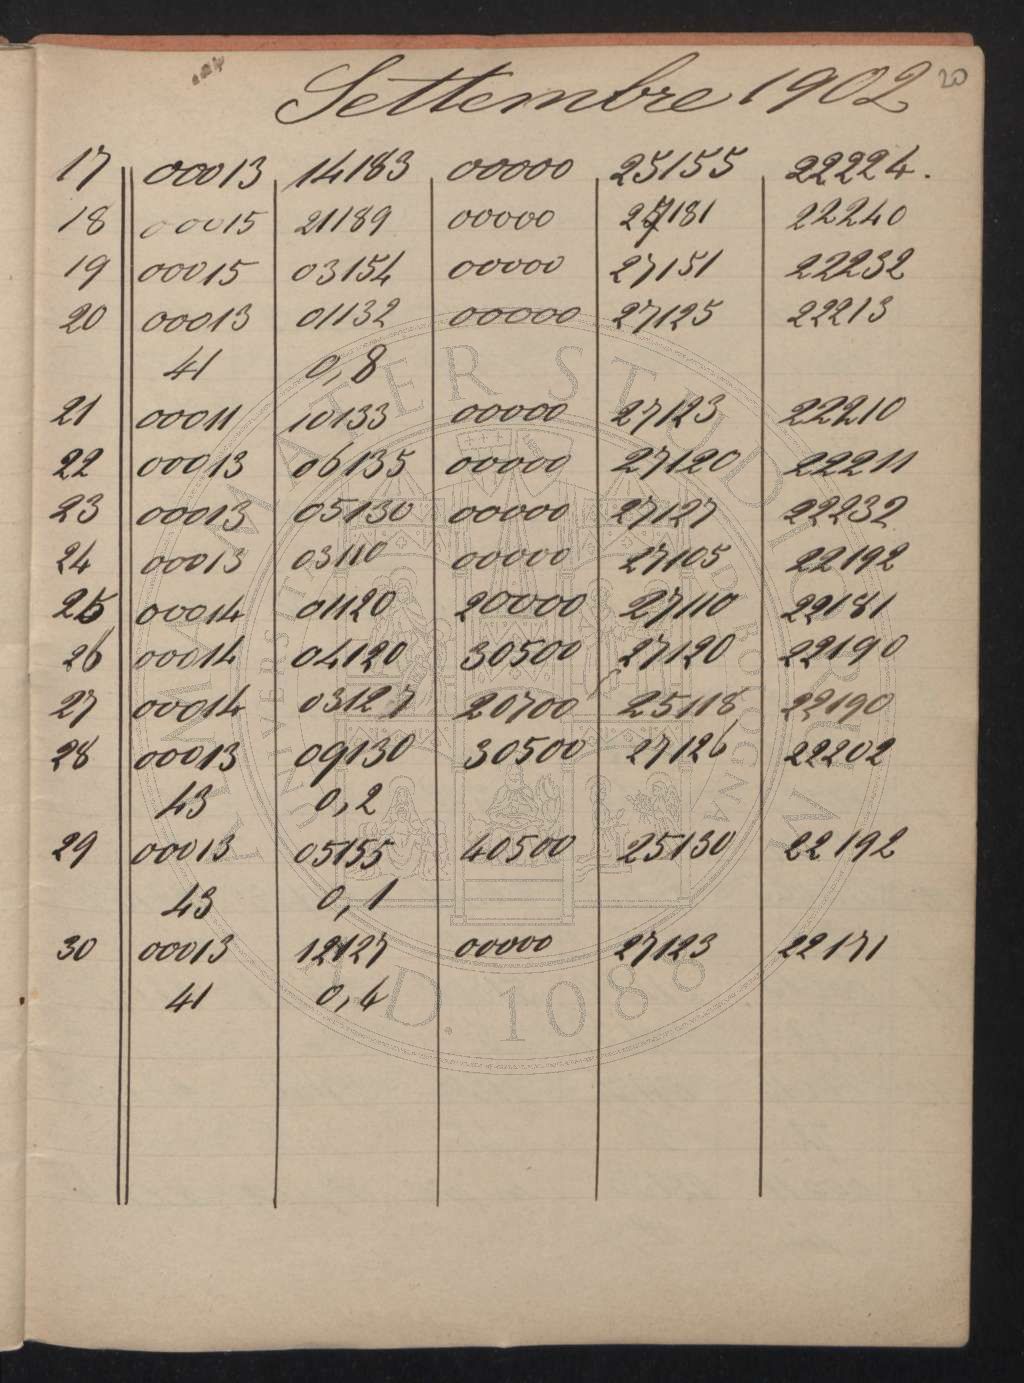 20
Settembre 1902
17 00013 14183 00000 25155 22224.
18 00015 21189 00000 27181 22240
19 00015 03154 00000 27151 22232
20 00013 01132 00000 27125 22213
41 0,8
21 00011 10133 00000 27123 22210
22 00013 06135 00000 27120 22211
23 00013 05130 00000 27127 22232
24 00013 03110 00000 27105 22192
25 00014 01120 20000 27110 22181
26 00014 04120 30500 27120 22190
27 00014 03127 20700 25118 22190
28 00013 09130 30500 27126 22202
43 0,2
29 00013 05155 40500 25130 22192
43 0,1
30 00013 12127 00000 27123 22171
41 0,4
ALMA MATER STUDIORUM
A.D. 1088